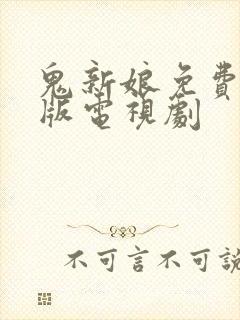 鬼新娘免費
版電視劇
不可言不可說